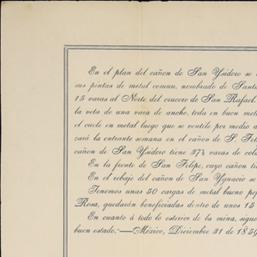 En el plan del cañon de San Ysidero se
sus pintas de metal comun, nombrado de Santa
15 varas al Norte del crucero de San Rafael.
la veta de una vara de ancho, toda en buen meta
el cuele en metal luego que se ventile por medio
vará la entrante semana en el cañon de S. Fel
cañon de San Ysidero tiene 37½ varas de col
En la frente de San Felipe, cuyo cañon tie
En el rebaje del cañon de San Ygnacio se
Tenemos unas 50 cargas de metal bueno pe
Rosa, quedarán beneficiadas dentro de unos 15
En cuanto á todo lo esterior de la mina, sigue
buen estado.—México, Diciembre 31 de 185